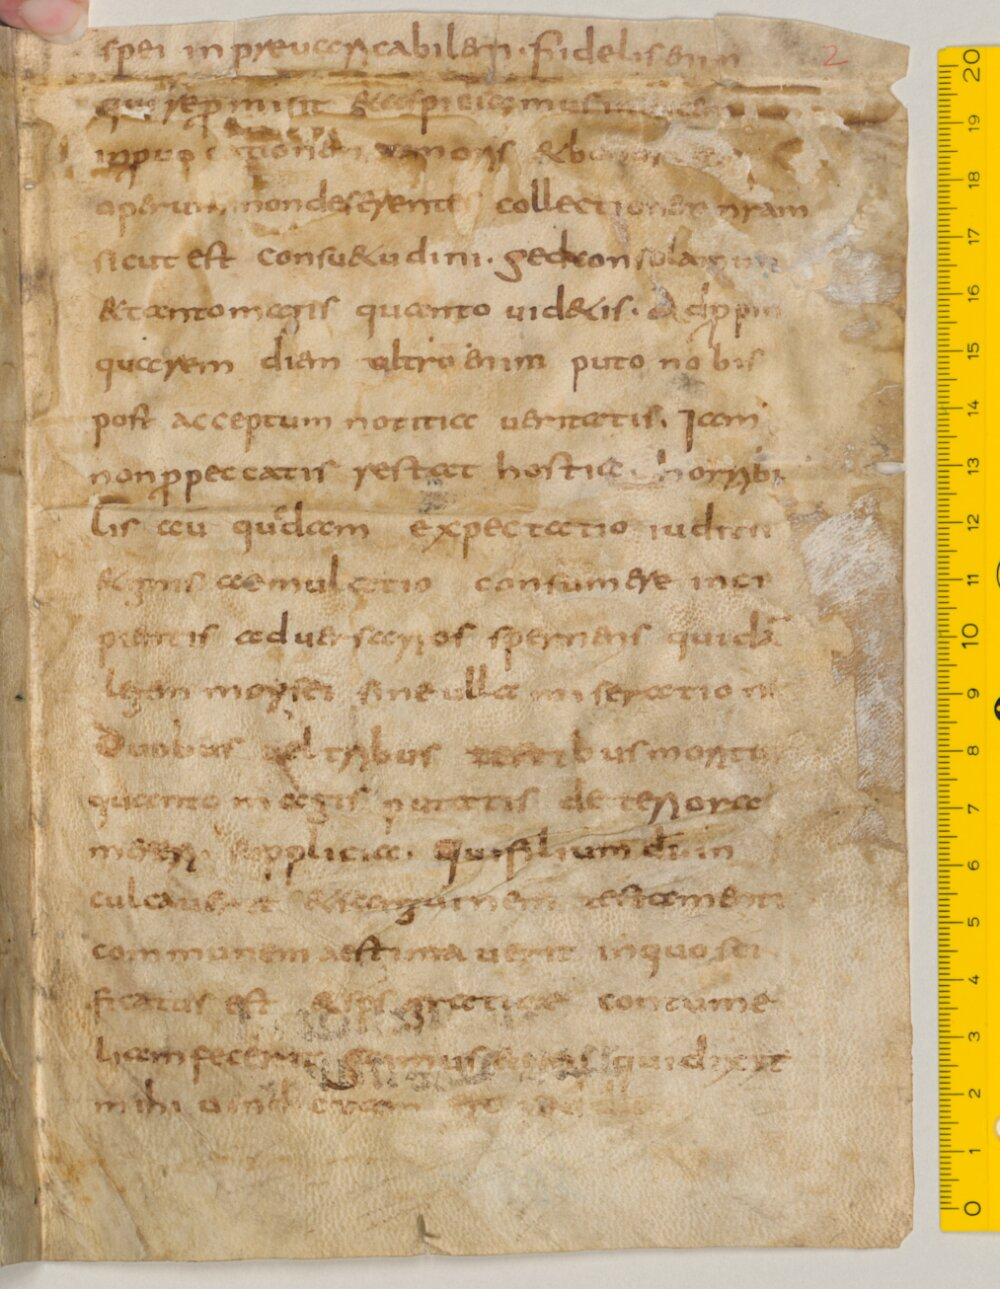 spei inpreuaricabilem · fidelis enim 2
qui repromisit &
inprouocationem amoris & bonorum
operum, non deserentes collectionem nram
sicut est consu&udini · sed consolantes
& tanto magis quanto uid&is · Adpropin
quarem diem ultro enim puto nobis
post acceptum notitia ueritatis. Iam
non ppeccatis restat hostia · horribi
lis au qudam expectatio iudicii
& ignis aemulatio consumere inci
pientis aduersarios spernens quida
legem moysei sine ulla miseratione
Duobus uel tribus testibus moritu
quanto magis putatis deteriora
suppliciia. Qui filium di in
culcauerit & sanguinem testamenti
communem aestimauerit inquo sci
ficatus est & spi gratiae contume
liam fecerit scimus enim qui dixit
mihi
20 19 18 17 16 15 14 13 12 11 10 9 8 7 6 5 4 3 2 1 0